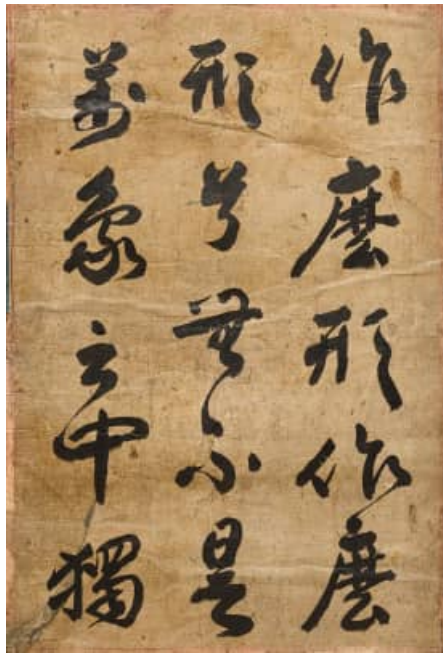 作麼形作麼
形兮無不是
萬象之中獨